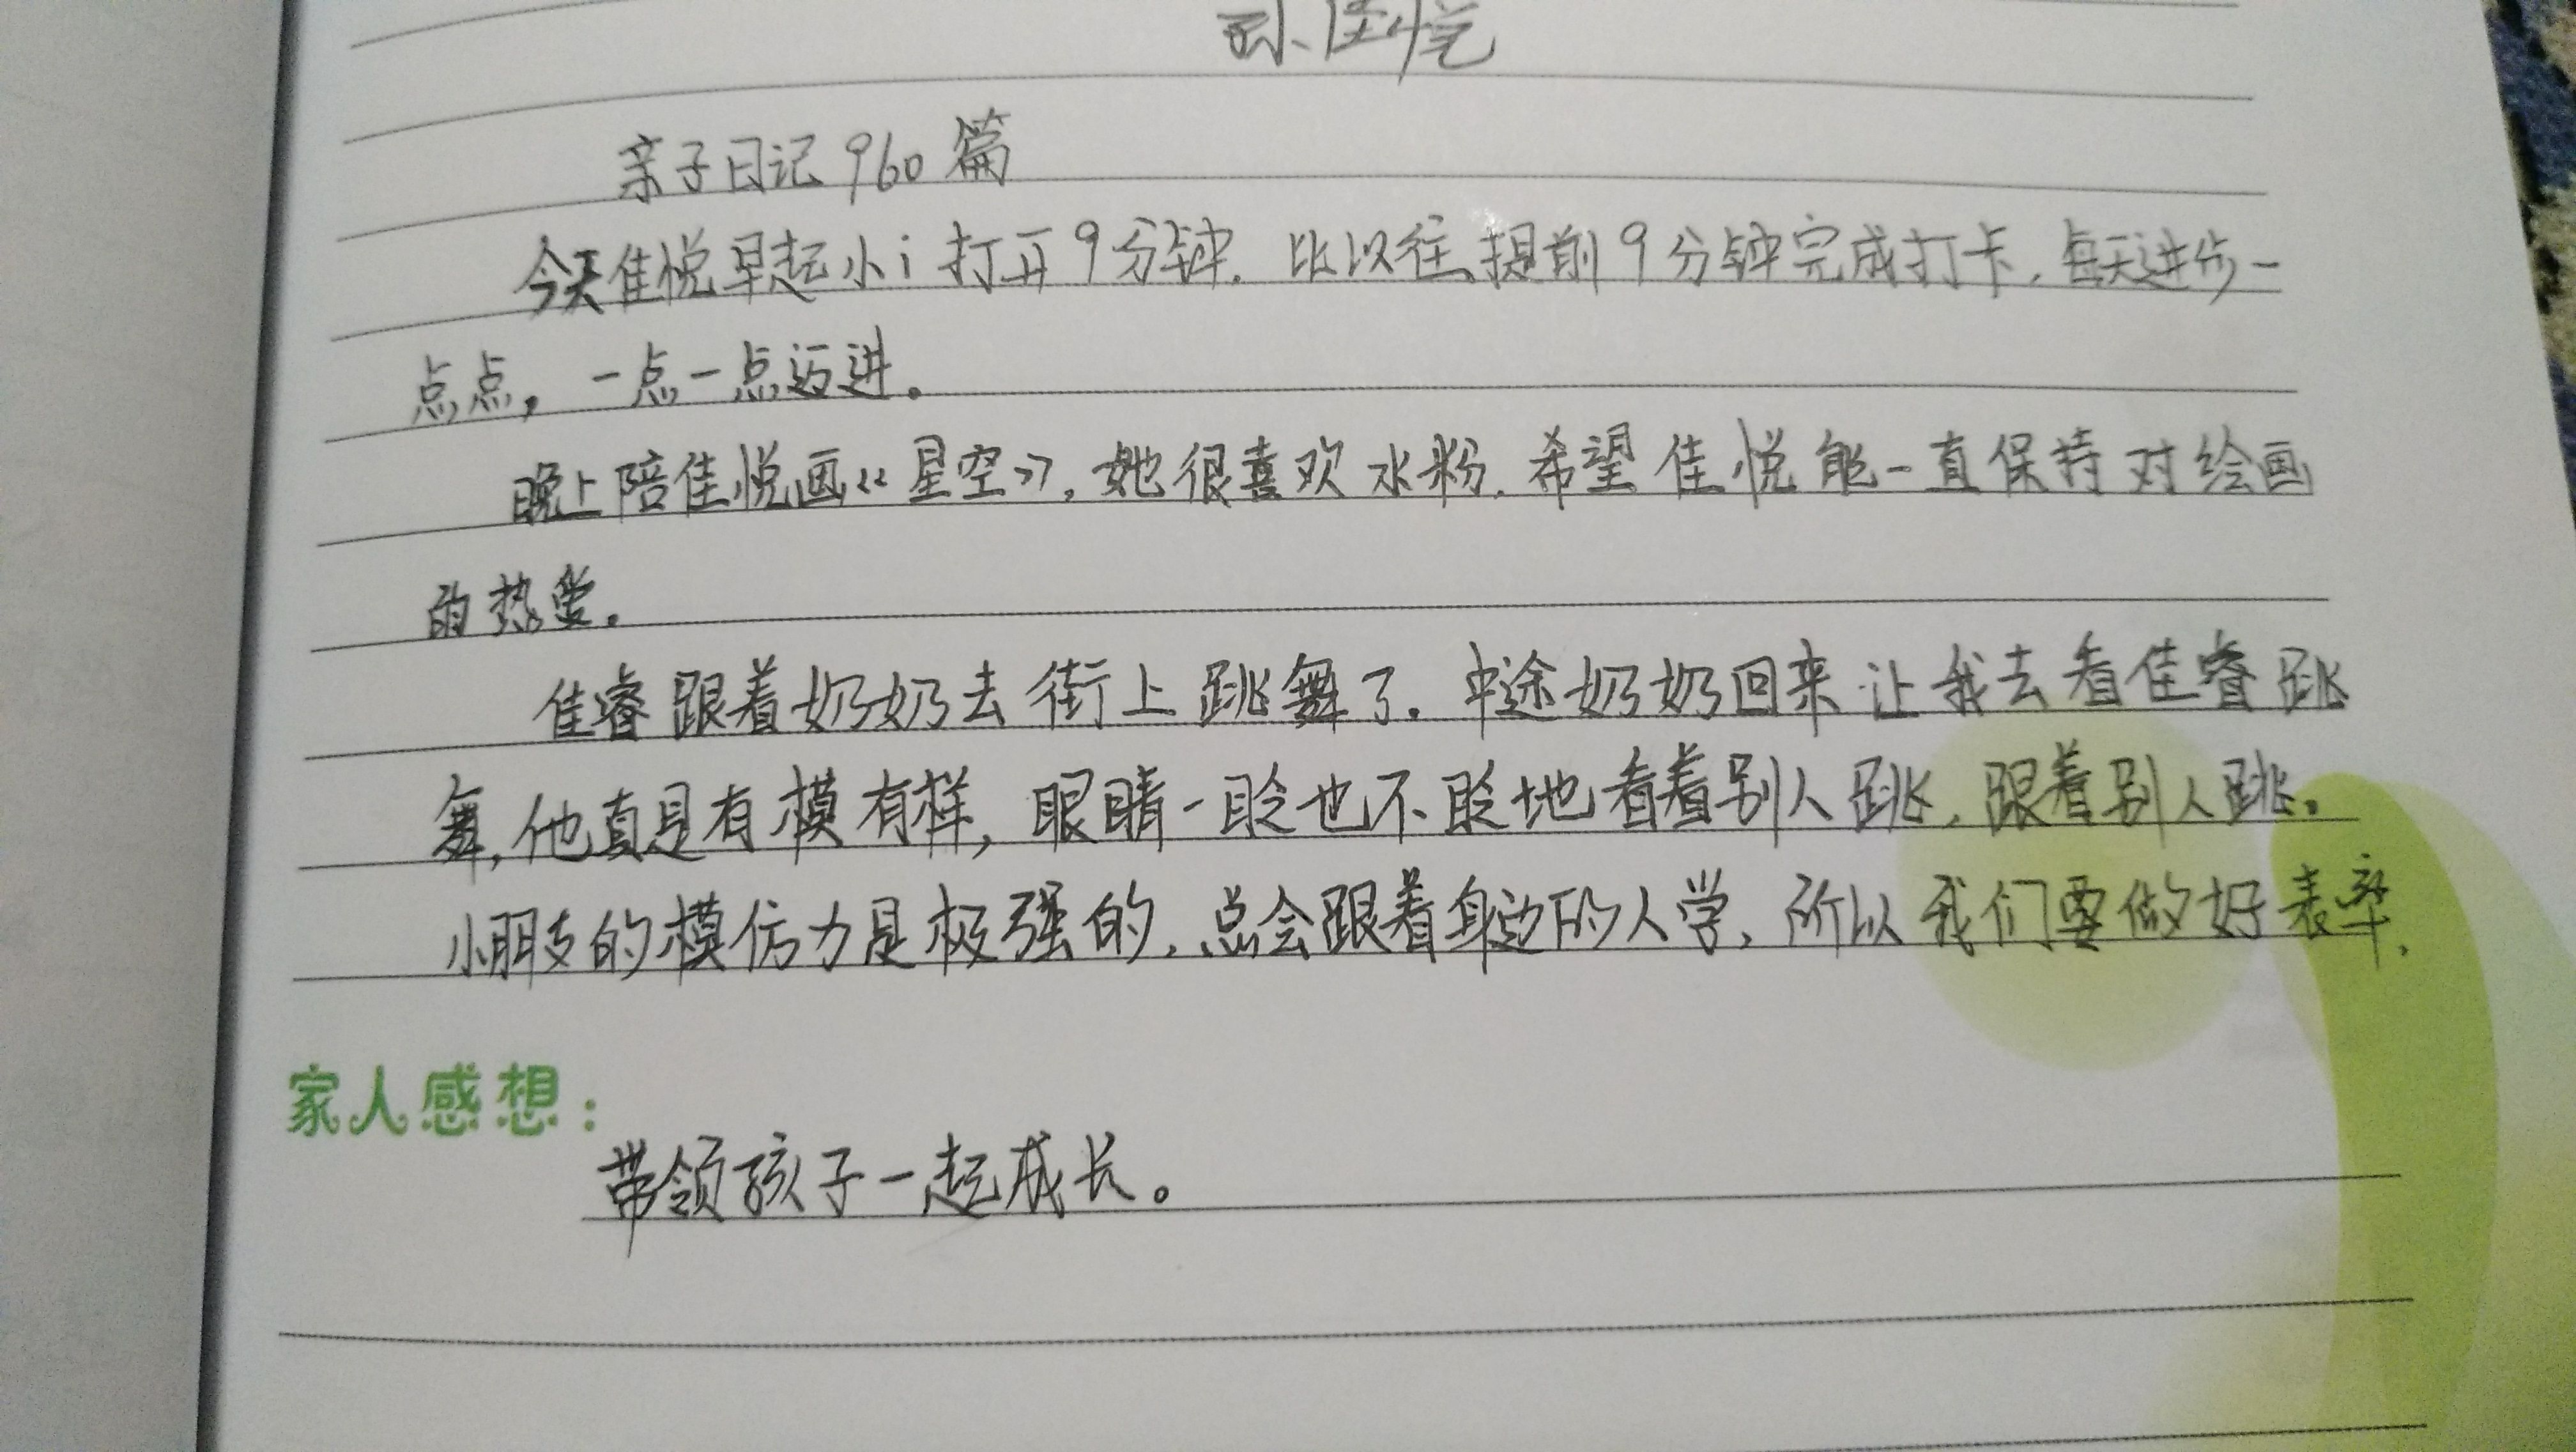 孙佳悦
亲子日记960篇
今天佳悦早起小i打开9分钟.比以往提前9分钟完成打卡,每天进步一
点点,一点一点迈进。
晚上陪佳悦画《星空》,她很喜欢水粉.希望佳悦能一直保持对绘画
的热爱。
佳睿跟着奶奶去街上跳舞了.中途奶奶回来让我去看佳睿跳
舞,他真是有模有样,眼睛一眨也不眨地看着别人跳,跟着别人跳。
小朋友的模仿力是极强的,总会跟着身边的人学,所以我们要做好表率.
家人感想:
带领孩子一起成长。